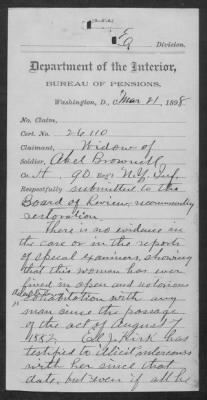 Ex Division.
Department of the Interior,
BUREAU OF PENSIONS,
Washington, D. C. Mar 21, 1898
No. Claim,
Cert. No. 26110
Claimant, Widow of
Soldier, Abel Brownell
Co. H, 90 Reg't N.Y. Inf.
Respectfully submitted to the
Board of Review recommending
restoration.
There is no evidence in
the case or in the reports
of special examiners, showing
that this woman has ever
lived in open and notorious
adulterous
cohabitation with any
man since the passage
of the act of August 7
1882. J. Kirk has
testified to illicit intercourse
with her since that
date, but even if all he